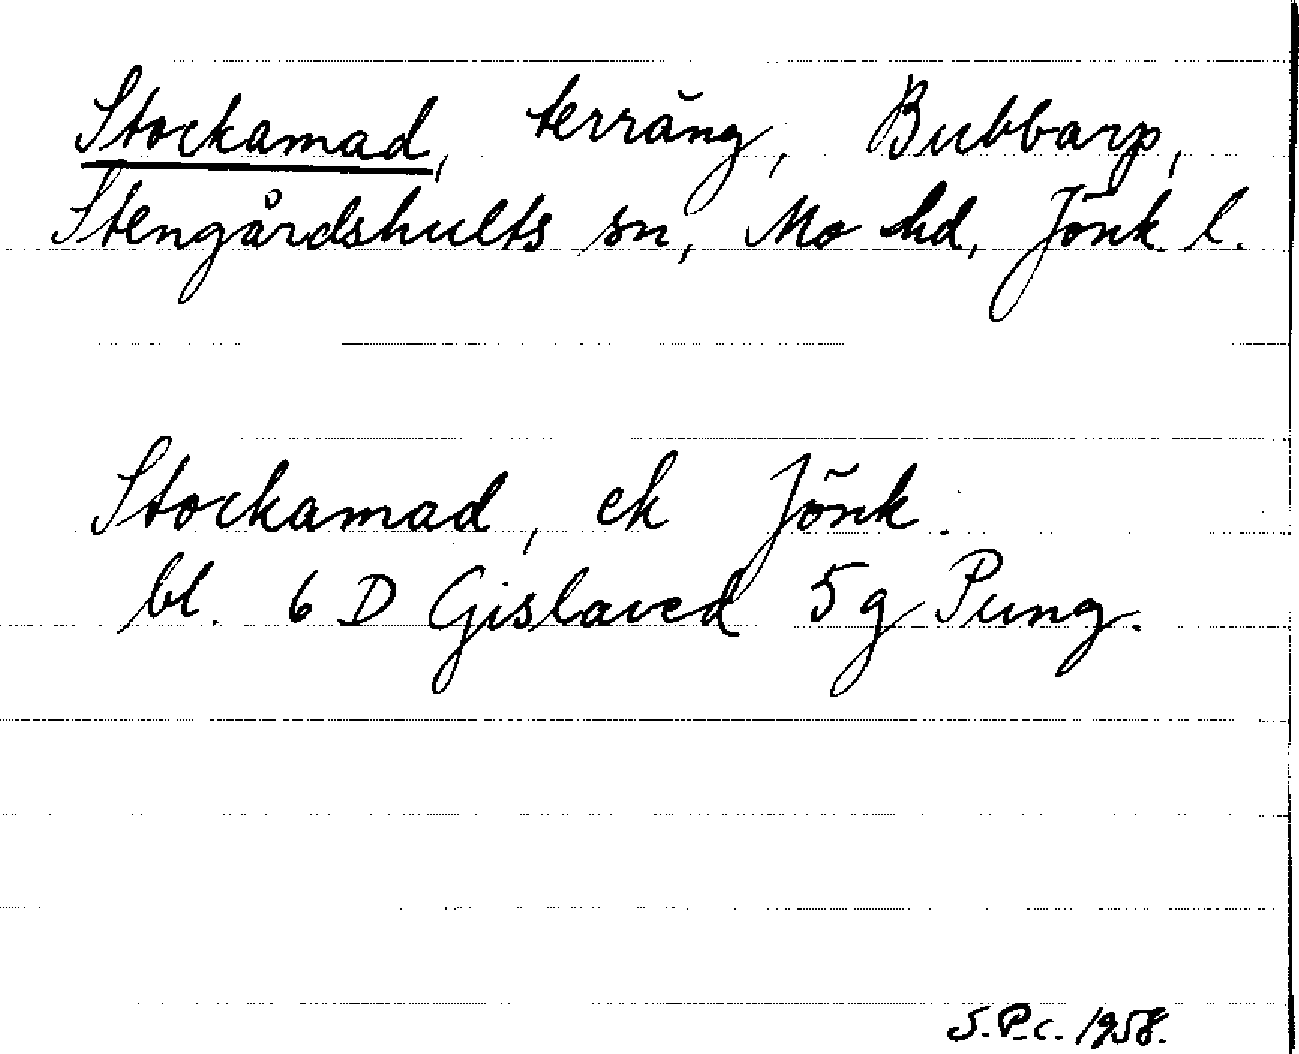 Stockamad, terräng, Bubbarp,
Stengårdshults sn, Mo hd, Jönk. l.
Stockamad, ek Jönk.
bl. 6 D Gislaved 5 g Pung.
S.P.c. 1958.